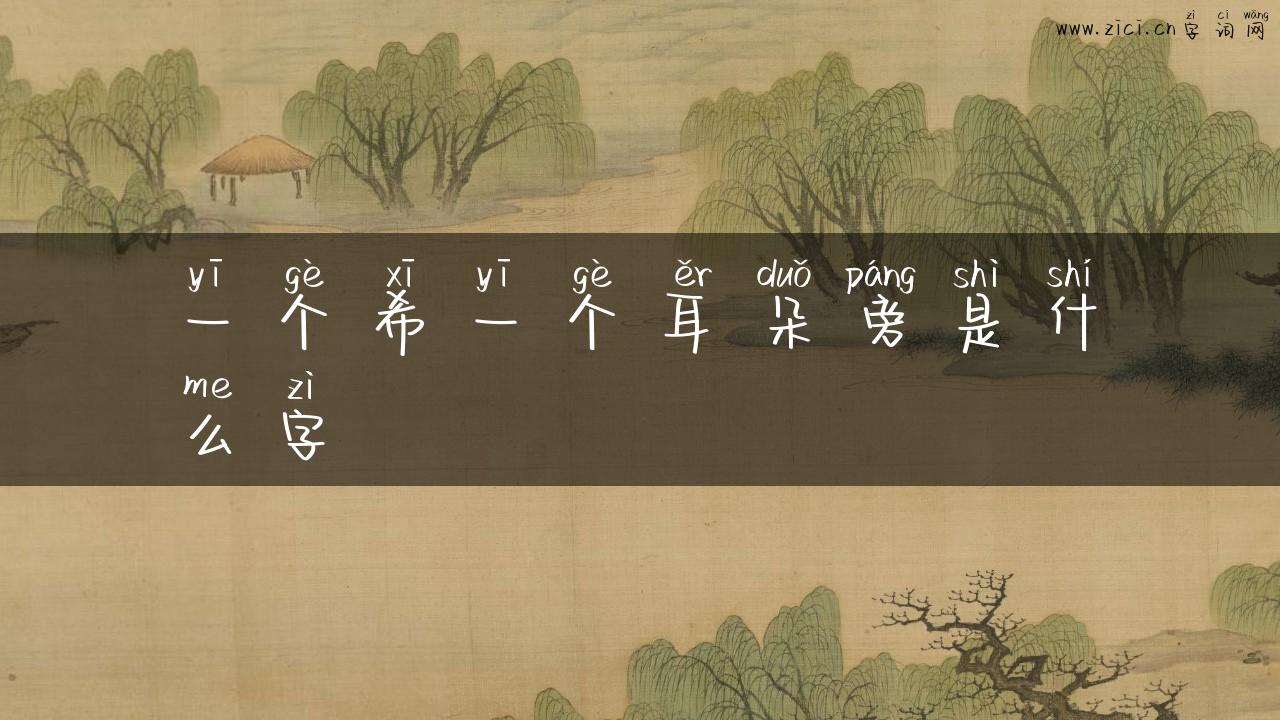 zì cí wǎng
www.zici.cn 字 词 网
yī gè xī yī gè ěr duǒ páng shì shí
一 个 希 一 个 耳 朵 旁 是 什
me zì
么 字